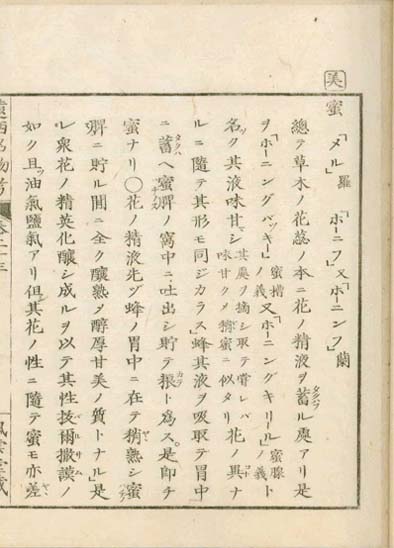 美
蜜 「メル」羅 「ホーニフ」又「ホーニンフ」蘭
總テ草木ノ花蕊ノ本ニ花ノ精液ヲ蓄ル處アリ是
ヲ「ホーニングバッキー」蜜槽ノ義又「ホーニングキリール」蜜腺ノ義ト
名ク其液味甘シ其奥ヲ摘シ取テ嘗レバ味甘クメ蜜ニ似タリ花ノ異ナ
ルニ隨テ其形モ同ジカラス」蜂其液ヲ吸取テ胃中
ニ蓄ヘ蜜脾ノ窩中ニ吐出シ貯テ粮ト爲ス。是即チ
蜜ナリ〇花ノ精液先ヅ蜂ノ胃中ニ在テ稍熟シ蜜
脾ニ貯ル間ニ全ク釀熟メ醇厚甘美ノ質トナル」是
レ衆花ノ精英化釀シ成ルヲ以テ其性抜爾撒謨ノ
如ク且ツ油氣鹽氣アリ但其花ノ性ニ隨テ蜜モ亦差